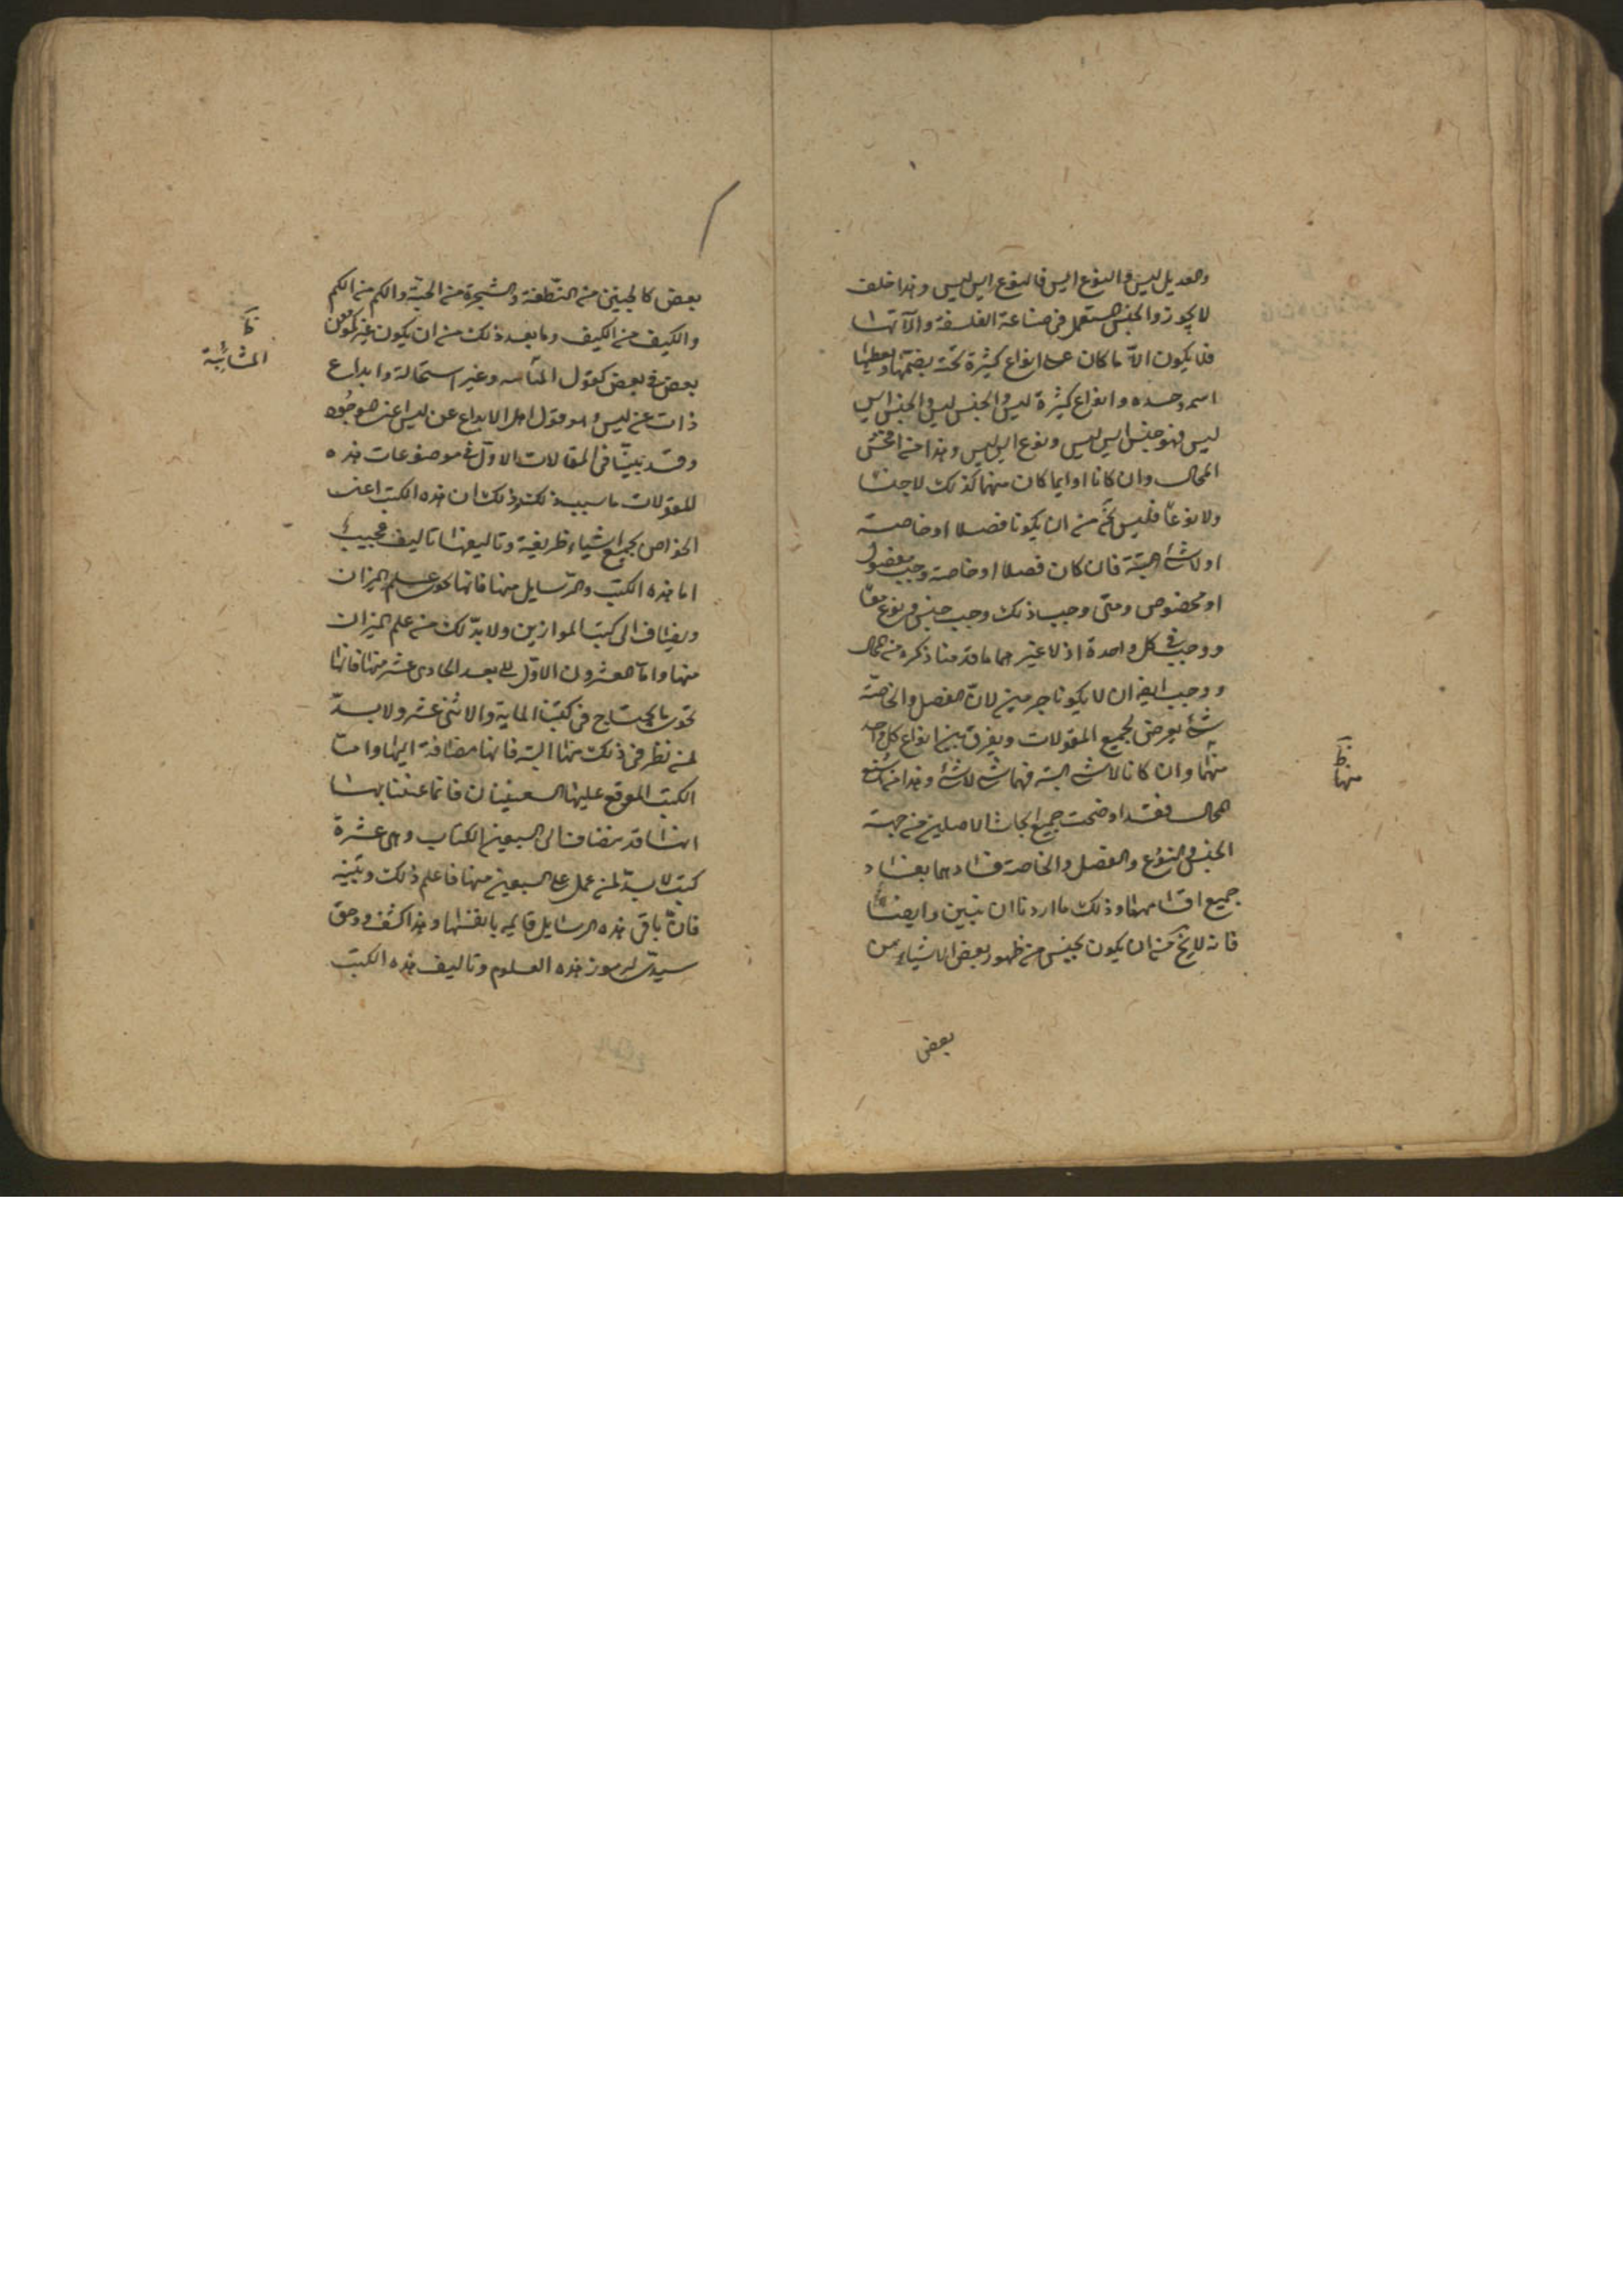 والعديل ليس والنوع ايس فالنوع ايس ليس وهذا خلف
لا يجوز والجنس المستعمل فى صناعة الفلسفة والآتها
فلا يكون الّا ما كان على انواع كثيرة تحته يضمّها ويعطيها
اسمه وحده وانواع كثيرة ليس والجنس ليس والجنس ايس
ليس فهو جنس ايس ليس ونوع ايس ليس وهذا من افحش
المحال وان كانا او ايما كان منهما كذلك لا جنسًا
ولا نوعًا فليس يخ من ان يكونا فصلا او خاصة
او لا شئ البتة فان كان فصلا او خاصة وجب مفصول
او مخصوص ومتى وجب ذلك وجب جنس ونوع معًا
ووجب فى كل واحدة اذ لا غيرهما ما قدمنا ذكره من المحال
ووجب ايضا ان لا يكونا جرمين لانّ الفصل والخاصّة
شئ يعرض لجميع المقولات ويفرق بين انواع كل واحد
منهما وان كانا لا شئ البتة فهما شئ لا شئ وهذا من اشنع
المحال فقد اوضحت جميع ابحاث الاصلين من جهة
الجنس والنوع والفصل والخاصة فسادهما بفساد
جميع اقسامهما وذلك ما اردنا ان نبين وايضًا
فانه لا يخ من ان يكون يجيس من ظهور بعض الاشياء من
بعض
ظ
منها
بعض كالجنين من النّطفة والشجرة من الحبّة والكم من الكم
والكيف من الكيف وما بعد ذلك من ان يكون غير كمون
بعض فى بعض كقول المنانيه وغير استحالة وابداع
ذات عن ليس وهو قول اهل الابداع عن ليس اعنى هو جُود
وقد بيّنّا فى المقالات الاوّل فى موضوعات هذه
المقولات ما سبب ذلك وذلك ان هذه الكتب اعنى
الخواص تجمع اشياء ظريفة وتاليفها تاليف عجيب
اما هذه الكتب والرّسايل منها فانها تحوى علم الميزان
ويضاف الى كتب الموازين ولا بدّ لك من علم الميزان
منها وامّا العشرون الاوّل الى بعد الحادى عشر منها فانها
تحوى ما يحتاج فى كتبنا الماية والاثنى عشر ولا بدّ
لمن نظر فى ذلك منها البتة فانها مضافة اليها وامّا
الكتب الموقع عليها السبعينان فانما عنينا بهـا
انها قد يضاف الى السبعين الكتاب وهى عشرة
كتب لا بدّ لمن عمل على السبعين منها فاعلم ذلك وتبيّنه
فانّ باقى هذه الرسايل قايمه بانفسها وهذا كشف وحق
سيدى لرموز هذه العلوم وتاليف هذه الكتب
ظ
المنانيّة